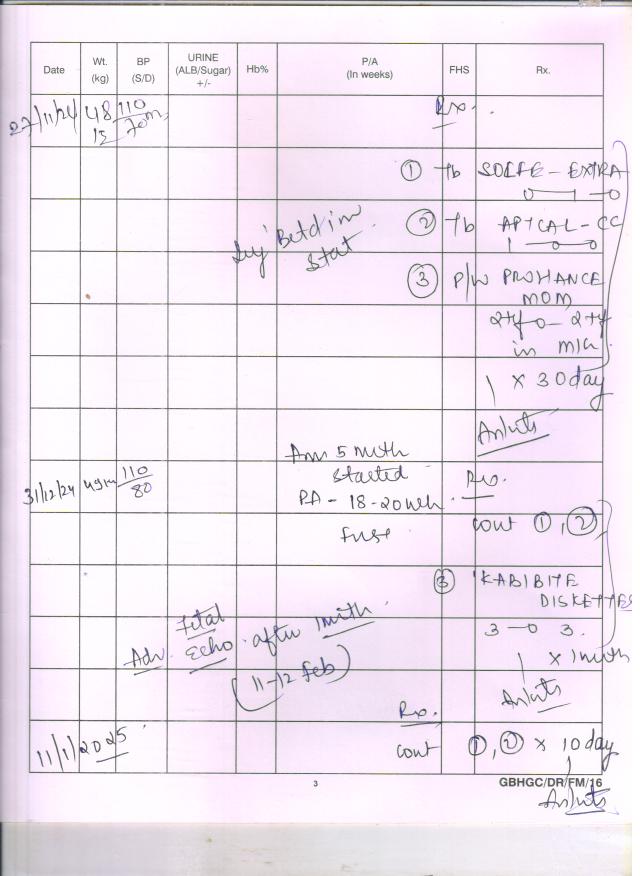 Date Wt. (kg) BP (S/D) URINE (ALB/Sugar) +/- Hb% P/A (In weeks) FHS Rx.
27/11/24 48 110/70 Rx.
① Tb SOLFE-EXTRA
0—1—0
② Tb APTCAL-CC
1—0—0
Inj Betdin
Stat
③ P/W PROHANCE
MOM
in milk
1 x 30 day
5 mnth
started
31/12/24 49 110/80 Rx.
PA - 18-20 wk
cont ①, ②
③ KABIBITE
DISKETTES
3—0 3.
x 1 mnth
Adv. Fetal
Echo. after 1 mnth.
(11-12 Feb)
Rx.
11/1/2025 cont ①, ② x 10 day
3
GBHGC/DR/FM/16